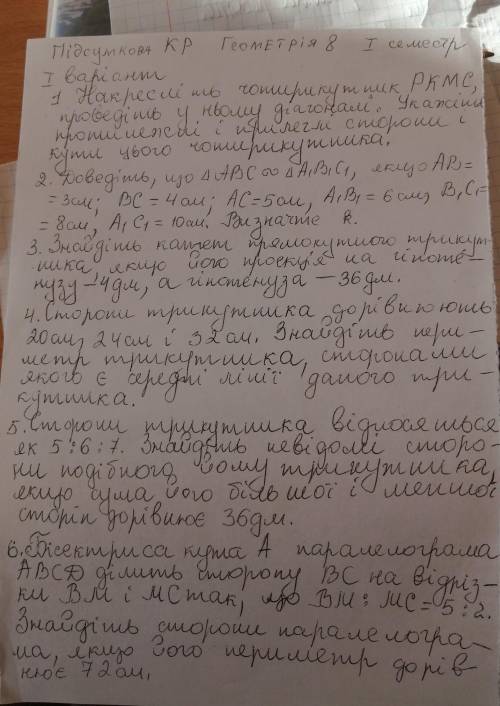 Підсумкова КР Геометрія 8 І семестр
І варіант
1 Накресліть чотирикутник РКМС,
проведіть у ньому діагоналі. Укажіть
протилежні і прилеглі сторони і
кути цього чотирикутника.
2. Доведіть, що △ABC ∞ △A₁B₁C₁, якщо AB=
= 3см; BC = 4см; AC=5см, A₁B₁ = 6 см, B₁C₁=
= 8см, A₁C₁ = 10см. Визначте k.
3. Знайдіть катет прямокутного трикут-
ника, якщо його проекція на гіпоте-
нузу - 4дм, а гіпотенуза - 36дм.
4. Сторони трикутника дорівнюють
20см, 24см і 32см. Знайдіть пери-
метр трикутника, сторонами
якого є середні лінії даного три-
кутника.
5. Сторони трикутника відносяться
як 5:6:7. Знайдіть невідомі сторо-
ни подібного йому трикутника,
якщо сума його більшої і меншої
сторін дорівнює 36дм.
6. Бісектриса кута А паралелограма
ABCD ділить сторону BC на відріз-
ки BM і MC так, що BM : MC = 5:2.
Знайдіть сторони паралелогра-
ма, якщо його периметр дорів-
нює 72см.